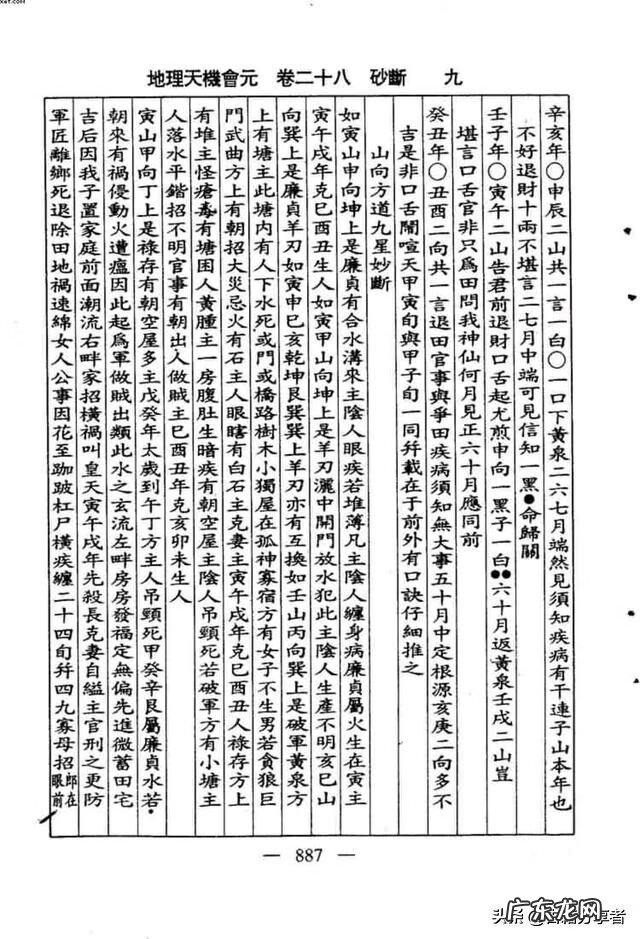 地理天機會元　卷二十八　砂斷　九
辛亥年○申辰二山共一言一白○一口下黃泉二六七月端然見須知疾病有干連子山本年也
不好退財十兩不堪言二七月中端可見信知一黑●命歸關
壬子年○寅午二山告君前退財口舌起尤煎申向一黑子一白●●六十月返黃泉壬戌二山豈
堪言口舌官非只為田問我神仙何月見正六十月應同前
癸丑年○丑酉二向共一言退田官事與爭田疾病須知無大事五十月中定根源亥庚二向多不
吉是非口舌鬧喧天甲寅旬與甲子旬一同幷載在于前外有口訣仔細推之
山向方道九星妙斷
如寅山申向坤上是廉貞有合水溝來主陰人眼疾若堆薄凡主陰人纏身病廉貞屬火生在寅主
寅午戌年克巳酉丑生人如寅甲山向坤上是羊刃灑中開門放水犯此主陰人生產不明亥巳山
向巽上是廉貞羊刃如寅申巳亥乾坤艮巽巽上羊刃亦有互換如壬山丙向巽上是破軍黃泉方
上有塘主此塘內有人下水死或門或橋路樹木小獨屋在孤神寡宿方有女子不生男若貪狼巨
門武曲方上有朝招大災忌火有石主人眼瞎有白石主克妻主寅午戌年克巳酉丑人祿存方上
有堆主怪瘡毒有塘困人黃腫主一房腹肚生暗疾有朝空屋主陰人吊頸死若破軍方有小塘主
人落水平鍇招不明官事有朝出入做賊主巳酉丑年克亥卯未生人
寅山甲向丁上是祿存有朝空屋多主戊癸年太歲到午丁方主人吊頸死甲癸辛艮屬廉貞水若
朝來有禍侵動火遭瘟因此起為軍做賊出類此水之玄流左畔房房發福定無偏先進微蓄田宅
吉后因我子置家庭前面潮流右畔家招橫禍叫皇天寅午戌年先殺長克妻自縊主官刑之更防
軍匠離鄉死退除田地禍速綿女人公事因花至跏跛杠尸橫疾纏二十四旬幷四九寡母招郎在眼前
— 887 —
广东龙网
头条
享者